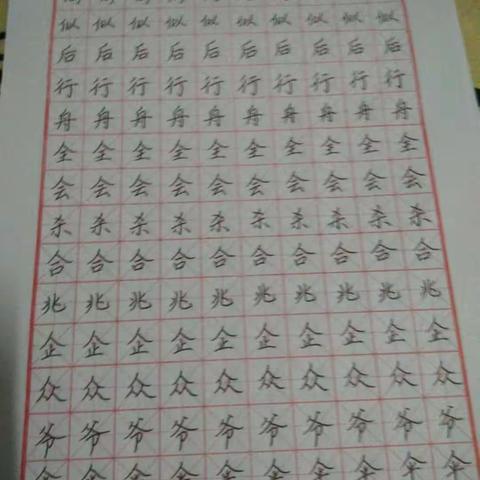 似 似 似 似 似 似 似 似 似 似
后 后 后 后 后 后 后 后 后 后
行 行 行 行 行 行 行 行 行 行
舟 舟 舟 舟 舟 舟 舟 舟 舟 舟
全 全 全 全 全 全 全 全 全 全
会 会 会 会 会 会 会 会 会 会
杀 杀 杀 杀 杀 杀 杀 杀 杀 杀
合 合 合 合 合 合 合 合 合 合
兆 兆 兆 兆 兆 兆 兆 兆 兆 兆
企 企 企 企 企 企 企 企 企 企
众 众 众 众 众 众 众 众 众 众
爷 爷 爷 爷 爷 爷 爷 爷 爷 爷
伞 伞 伞 伞 伞 伞 伞 伞 伞 伞